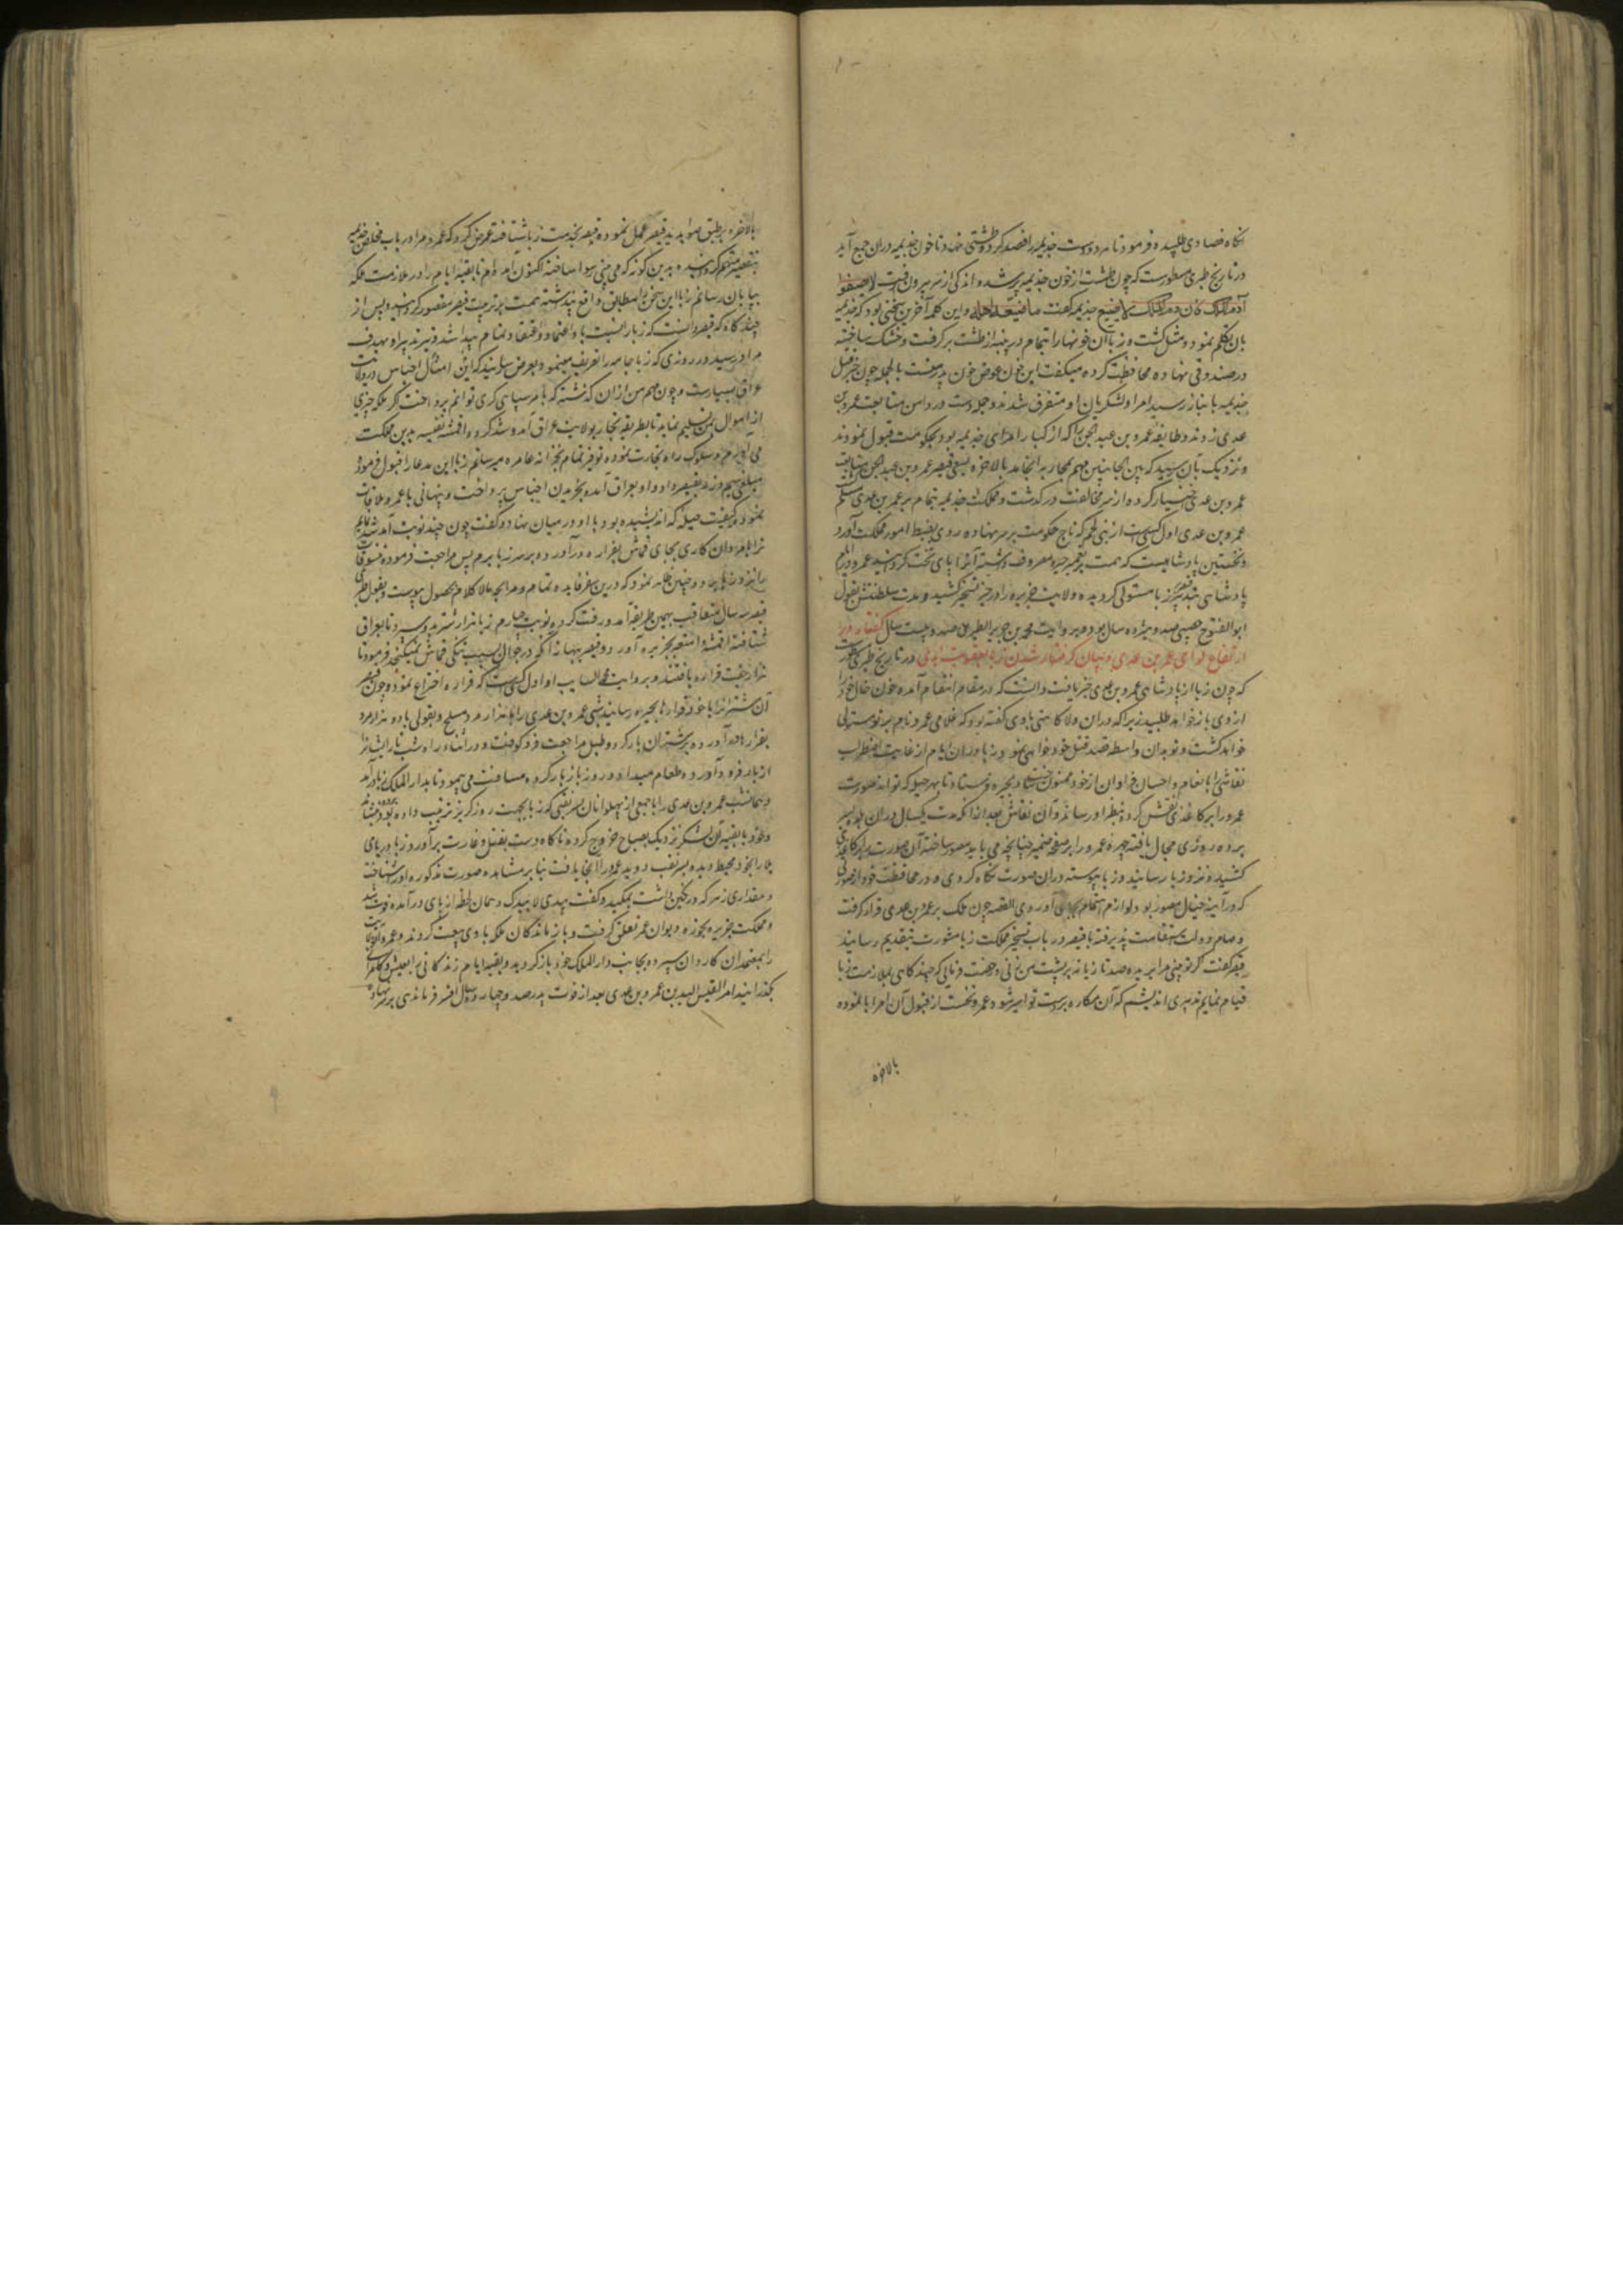 انکاه فصادی طلبیده فرمود تا هر دو دست جذیمه را فصد کرد و طشتی نهاد تا خون جذیمه دران جمع آید
در تاریخ طبری مسطورست که چون طشت از خون جذیمه پر شد و اندکی از سر بیرون رفت لا یضیعوا
دم الملک فان دم الملک لا یضیع جذیمه کفت ما ضیعه اهله و این کلمه آخرین سخنی بود که جذیمه
بان تکلم نمود و مثل کشت و زبا آن خونها را بتمام در پنبه از طشت بر کرفت و خشک ساخته
در صندوقی نهاده محافظت کرده میکفت این خون عوض خون پدر منست بالجمله چون خبر قتل
جذیمه بانبار رسید امرا و لشکریان او متفرق شدند و جمله دست در دامن متابعت عمرو بن
عدی زدند و طایفه عمرو بن عبد الجن را که از کبار امرای جذیمه بود بحکومت قبول نمودند
و نزدیک بآن رسید که بین الجانبین مهم بمحاربه انجامد بالاخره بسعی قیصر عمرو بن عبد الجن متابعت
عمرو بن عدی اختیار کرده از سر مخالفت در کذشت و مملکت جذیمه بتمام بر عمرو بن عدی مسلم
عمرو بن عدی اول کسی است از بنی لخم که تاج حکومت بر سر نهاده روی بضبط امور مملکت آورد
و نخستین پادشاهیست که همت بر تعمیر حیره مصروف داشته آنرا پای تخت کردانید عمرو در ایام
پادشاهی بتدبیر قیصر بر زبا مستولی کردیده ولایت جزیره را در حیز تسخیر کشید و مدت سلطنتش بقول
ابو الفتوح صد و هژده سال بود و بروایت محمد بن جریر الطبری صد و بیست سال کفتار در
ارتفاع لوای عمرو بن عدی و بیان کرفتار شدن زبا بعقوبت ابدی در تاریخ طبری مسطورست
که چون زبا از پادشاهی عمرو بن عدی خبر یافت دانست که در مقام انتقام آمده خون خال خود را
از وی باز خواهد طلبید زیرا که دران ولا کاهنی با وی کفته بود که غلامی عمرو نام بر تو مستولی
خواهد کشت و تو بدان واسطه قصد قتل خود خواهی نمود و زبا دران ایام از غایت اضطراب
نقاشی را بانعام و احسان فراوان از خود ممنون ساخته بحیره فرستاد تا بهر حیله که تواند صورت
عمرو را بر کاغذی نقش کرده بنظر او رساند و آن نقاش بعد از انکه مدت یکسال دران
بوده روزی مجال یافته چهره عمرو را بر صفحه ضمیر چنانچه می باید مصور ساخته آن صورت بر کاغذی
کشید و نزد زبا رسانید و زبا پیوسته دران صورت نکاه کردی و در محافظت خود از صورتی
که در آینه خیال مصور بود لوازم اهتمام بجای آوردی القصه چون ملک بر عمرو بن عدی قرار کرفت
و مهام دولت استقامت پذیرفته با قیصر در باب تسخیر مملکت زبا مشورت بتقدیم رسانید
قیصر کفت اکر تو بینی مرا بریده صد تازیانه بر پشت من زنی و رخصت فرمائی که چند کاهی بملازمت زبا
قیام نمایم تدبیری اندیشم که آن مکاره بدست تو اسیر شود عمرو نخست از قبول آن امر ابا نموده
بالاخره
بالاخره بر طبق صوابدید قیصر عمل نموده قیصر بخدمت زبا شتافته عرض کرد که عمرو مرا در باب
بتقصیر متهم کردانیده بدین کونه که می بینی رسوا ساخته اکنون آمده ام تا بقیه ایام را در ملازمت ملکه
بپایان رسانم زبا این سخن را مطابق واقع پنداشته همت بر تربیت قیصر مقصور کردانید و پس از
چند کاه که قیصر دانست که زبا را نسبت باو اعتماد و اعتقاد تمام پیدا شد و تیر تدبیر او بهدف
مراد رسید در روزی که زبا جامه را تعریف مینمود بعرض رسانید که این امثال اجناس در ولایت
عراق بسیارست و چون مهم من ازان کذشته که بامر سپاهی کری توانم پرداخت اکر ملکه چیزی
از اموال بمن تسلیم نماید تا بطریقه تجار بولایت عراق آمد و شد کرده اقمشه نفیسه بدین مملکت
می آورم و سلوک راه تجارت نموده توفیر تمام بخزانه عامره میرسانم زبا این مدعا را قبول فرموده
مبلغی سیم و زر بقیصر داد و او بعراق آمده بخریدن اجناس پرداخت و پنهانی با عمرو ملاقات
نموده کیفیت حیله که اندیشیده بود با او در میان نهاد و کفت چون چند نوبت آمد شد نمایم
ترا با مردان کاری بجای قماش بغراره درآورده بر سر زبا برم پس مراجعت فرموده متنوقات
را نزد زبا برده و چنین ظاهر نمود که درین سفر فایده تمام و مرابحه مالا کلام بحصول پیوست و بقول طبری
قیصر سه سال متعاقب بهمین طریقه آمد و رفت کرده نوبت چهارم زبا هزار شتر بدو سپرده تا بعراق
شتافته اقمشه و امتعه بجزیره آورد و قیصر ببهانه آنکه در جوال بسبب تنکی قماش نمیکنجد فرمود تا
هزار جفت غراره بافتند و بروایت محمد السایب او اول کسی است که غراره اختراع نمود و چون قیصر
آن شتران را با خود و غرارها بحیره رسانید بسی عمرو بن عدی را با هزار مرد مسلح و بقولی با دو هزار مرد
بغرارها درآورده بر شتران بار کرد و طبل مراجعت فرو کوفت و در اثناء راه شب بار ایشانرا
از بار فرود آورده طعام میداد و روز باز بار کرده مسافت می پیمود تا بدار الملک زبا درآمد
و همانشب عمرو بن عدی را با جمعی از پهلوانان بسر نقبی که زبا بجهت روز کریز ترتیب داده بود
و خود با بقیه آن لشکر نزدیک بصباح خروج کرده ناکاه دست بقتل و غارت برآورد و زبا دریای
بلا را بخود محیط دیده بسر نقب دوید عمرو را آنجا یافت بنابر مشاهده صورت مذکوره او را شناخت
و مقداری زهر که در نکین داشت بمکید و کفت بیدی لا بید ک و همان لحظه از پای درآمده فوت شد
و مملکت جزیره بحوزه دیوان عمرو تعلق کرفت و بازماندکان ملکه با وی بیعت کردند و عمرو آن ولایت
را بمعتمدان کاردان سپرده بجانب دار الملک خود باز کردید و بقیه ایام زندکانی را بعیش و کامرانی
بکذرانید امرء القیس البدء بن عمرو بن عدی بعد از فوت پدر صد و چهارده سال افسر فرماندهی بر سر نهاده